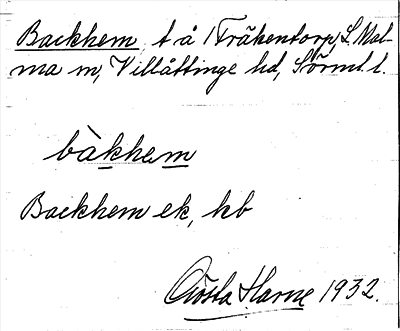 Backhem, t å 1 Fräkentorp, L. Mal-
ma sn, Villåttinge hd, Sörml. l.
bàkhem
Backhem ek, kb
Gösta Harne 1932.